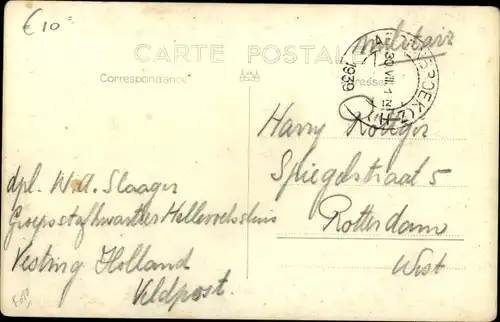 €10
CARTE POSTALE
militair
Correspondance
30 VII. 1
1939
Harry Rottger
Spiegelstraat 5
Rotterdam
West
dpl. W.A. Slaager
Groepsstafkwartier Hellevoetsluis
Vesting Holland
Veldpost.